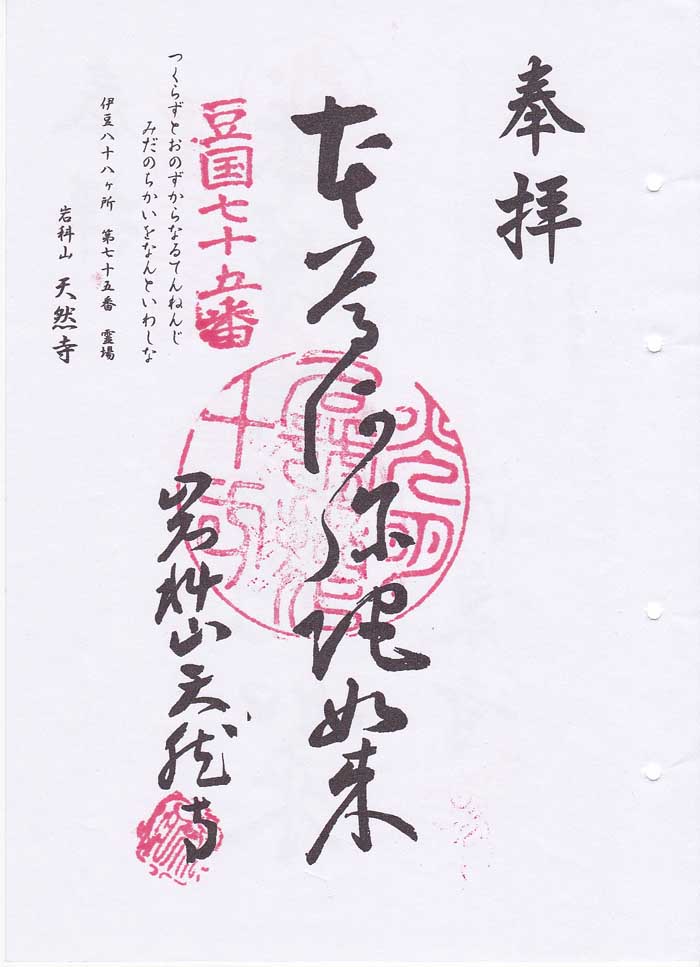 奉拝
本尊阿弥陀如来
豆国七十五番
岩科山天然寺
つくらずとおのずからなるてんねんじ
みだのちかいをなんといわしな
伊豆八十八ヶ所 第七十五番 霊場
岩科山 天然寺